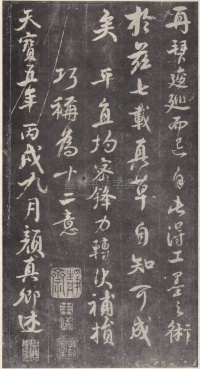 再拜逡巡而已自此得工墨之術
於茲七載真草自知可成
矣平直均密鋒力轉決補損
巧稱為十二意
天寶五年丙戌九月顏真卿述